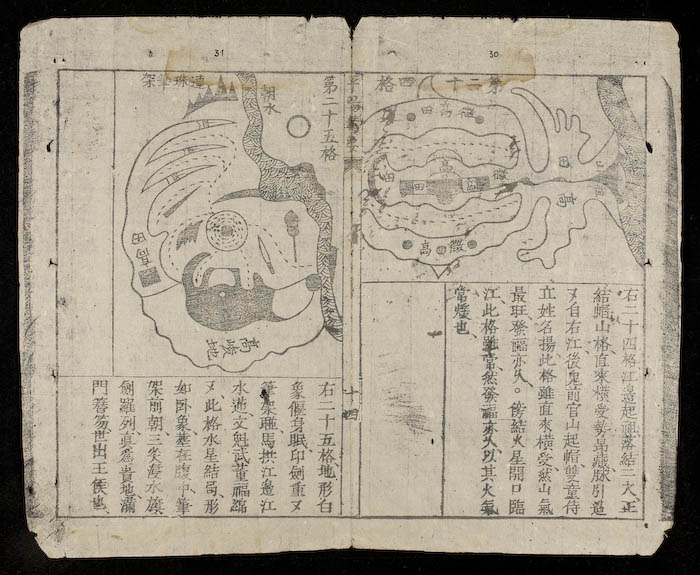 30
第二十四格
微高田
高
微
田
田
高
微
高
右二十四格江邊起祖落結三大正
結帽山格直來橫受勢昂
又自右江後鬼前官山起帽雙童侍
立姓名揚此格雖直來橫受然山氣
最旺發福亦久。傍結火星開口臨
江此格雖常然發福亦久以其火氣
常燈也
十四
31
第二十五格
朝水
連珠筆架
高田
高峻地
右二十五格地形白
象偃身眠印劍重又
筆架馬拱江邊江
水遊文魁武董福綿
又此格水星結局形
如卧象墓在腹中筆
架前朝三尖漫水旗
劍羅列真為貴地滿
門簪笏世出王侯也